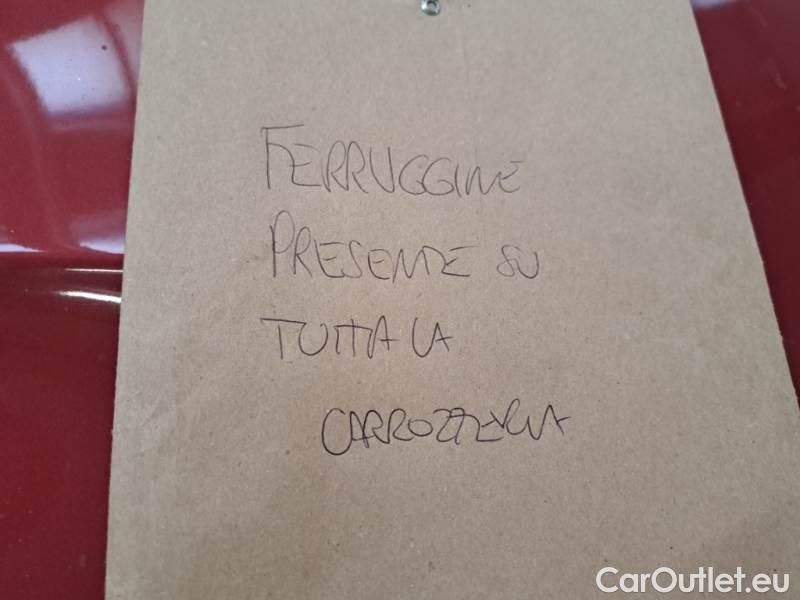 FERRUGGINE
PRESENTE SU
TUTTA LA
CARROZZERIA
CarOutlet.eu